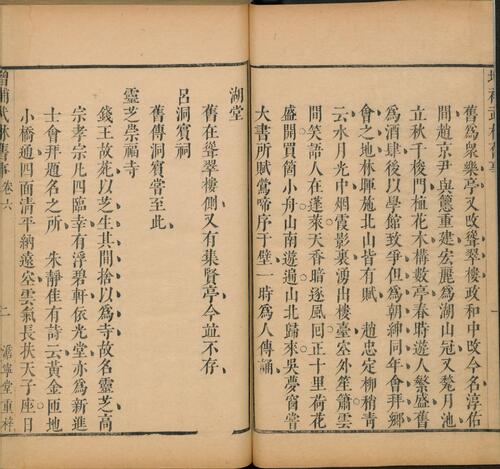 舊為衆樂亭又攺聳翠樓政和中攺今名淳佑
間趙京尹與𥲅重建宏麗為湖山冠又甃月池
立秋千梭門植花木構數亭春時遊人繁盛舊
為酒肆後以學館致爭但為朝紳同年會拜鄉
會之地林暉施北山皆有賦 趙忠定柳梢青
云水月光中烟霞影裏湧出樓臺空外笙簫雲
間笑語人在蓬萊天香暗逐風囘正十里荷花
盛開買箇小舟山南遊遍山北歸來吳夢窗嘗
大書所賦鶯啼序于壁一時為人傳誦
湖堂
舊在聳翠樓側又有集賢亭今並不存
呂洞賓祠
舊傳洞賓嘗至此
靈芝崇福寺
錢王故苑以芝生其間捨以為寺故名靈芝高
宗孝宗凡四臨幸有浮碧軒依光堂亦為新進
士會拜題名之所 朱靜佳有詩云黃金匝地
小橋通四面清平納遠空雲氣長扶天子座日
增補武林舊事 卷六 二 澹寧堂重梓